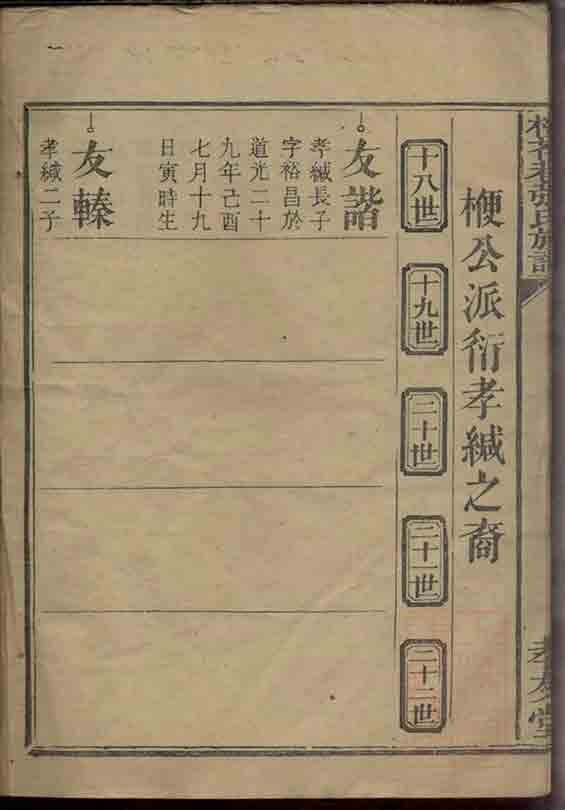 氏族譜
孝友堂
楩公派衍孝緘之裔
十八世
十九世
二十世
二十一世
二十二世
友諧
孝緘長子
字裕昌於
道光二十
九年己酉
七月十九
日寅時生
友轃
孝緘二子